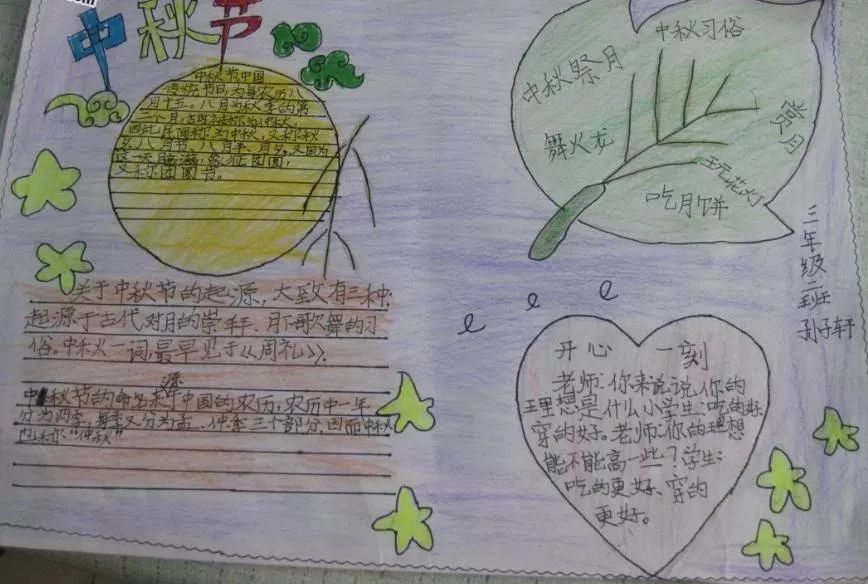 中秋节
中秋节中国
传统节日,为每农历八
月十五。八月为秋季的第
二个月,古时称为仲秋,
因此民间称为中秋,又称秋
夕,八月节,八月半,月夕,又因为
这一天月亮满,象征团圆,
又称团圆节。
关于中秋节的起源,大致有三种:
起源于古代对月的崇拜、月下歌舞的习
俗。中秋一词,最早见于《周礼》。
中秋节的命名源于中国的农历,农历中一年
分为四季,每季又分为孟、仲、季三个部分,因而中秋
也称“仲秋”
中秋习俗
中秋祭月
赏月
舞火龙
玩花灯
吃月饼
三年级二班
孙子轩
e e e
开心一刻
老师:你来说说你的
理想是什么小学生:吃的好、
穿的好。老师:你的理想
能不能高一些?学生:
吃的更好、穿的
更好。